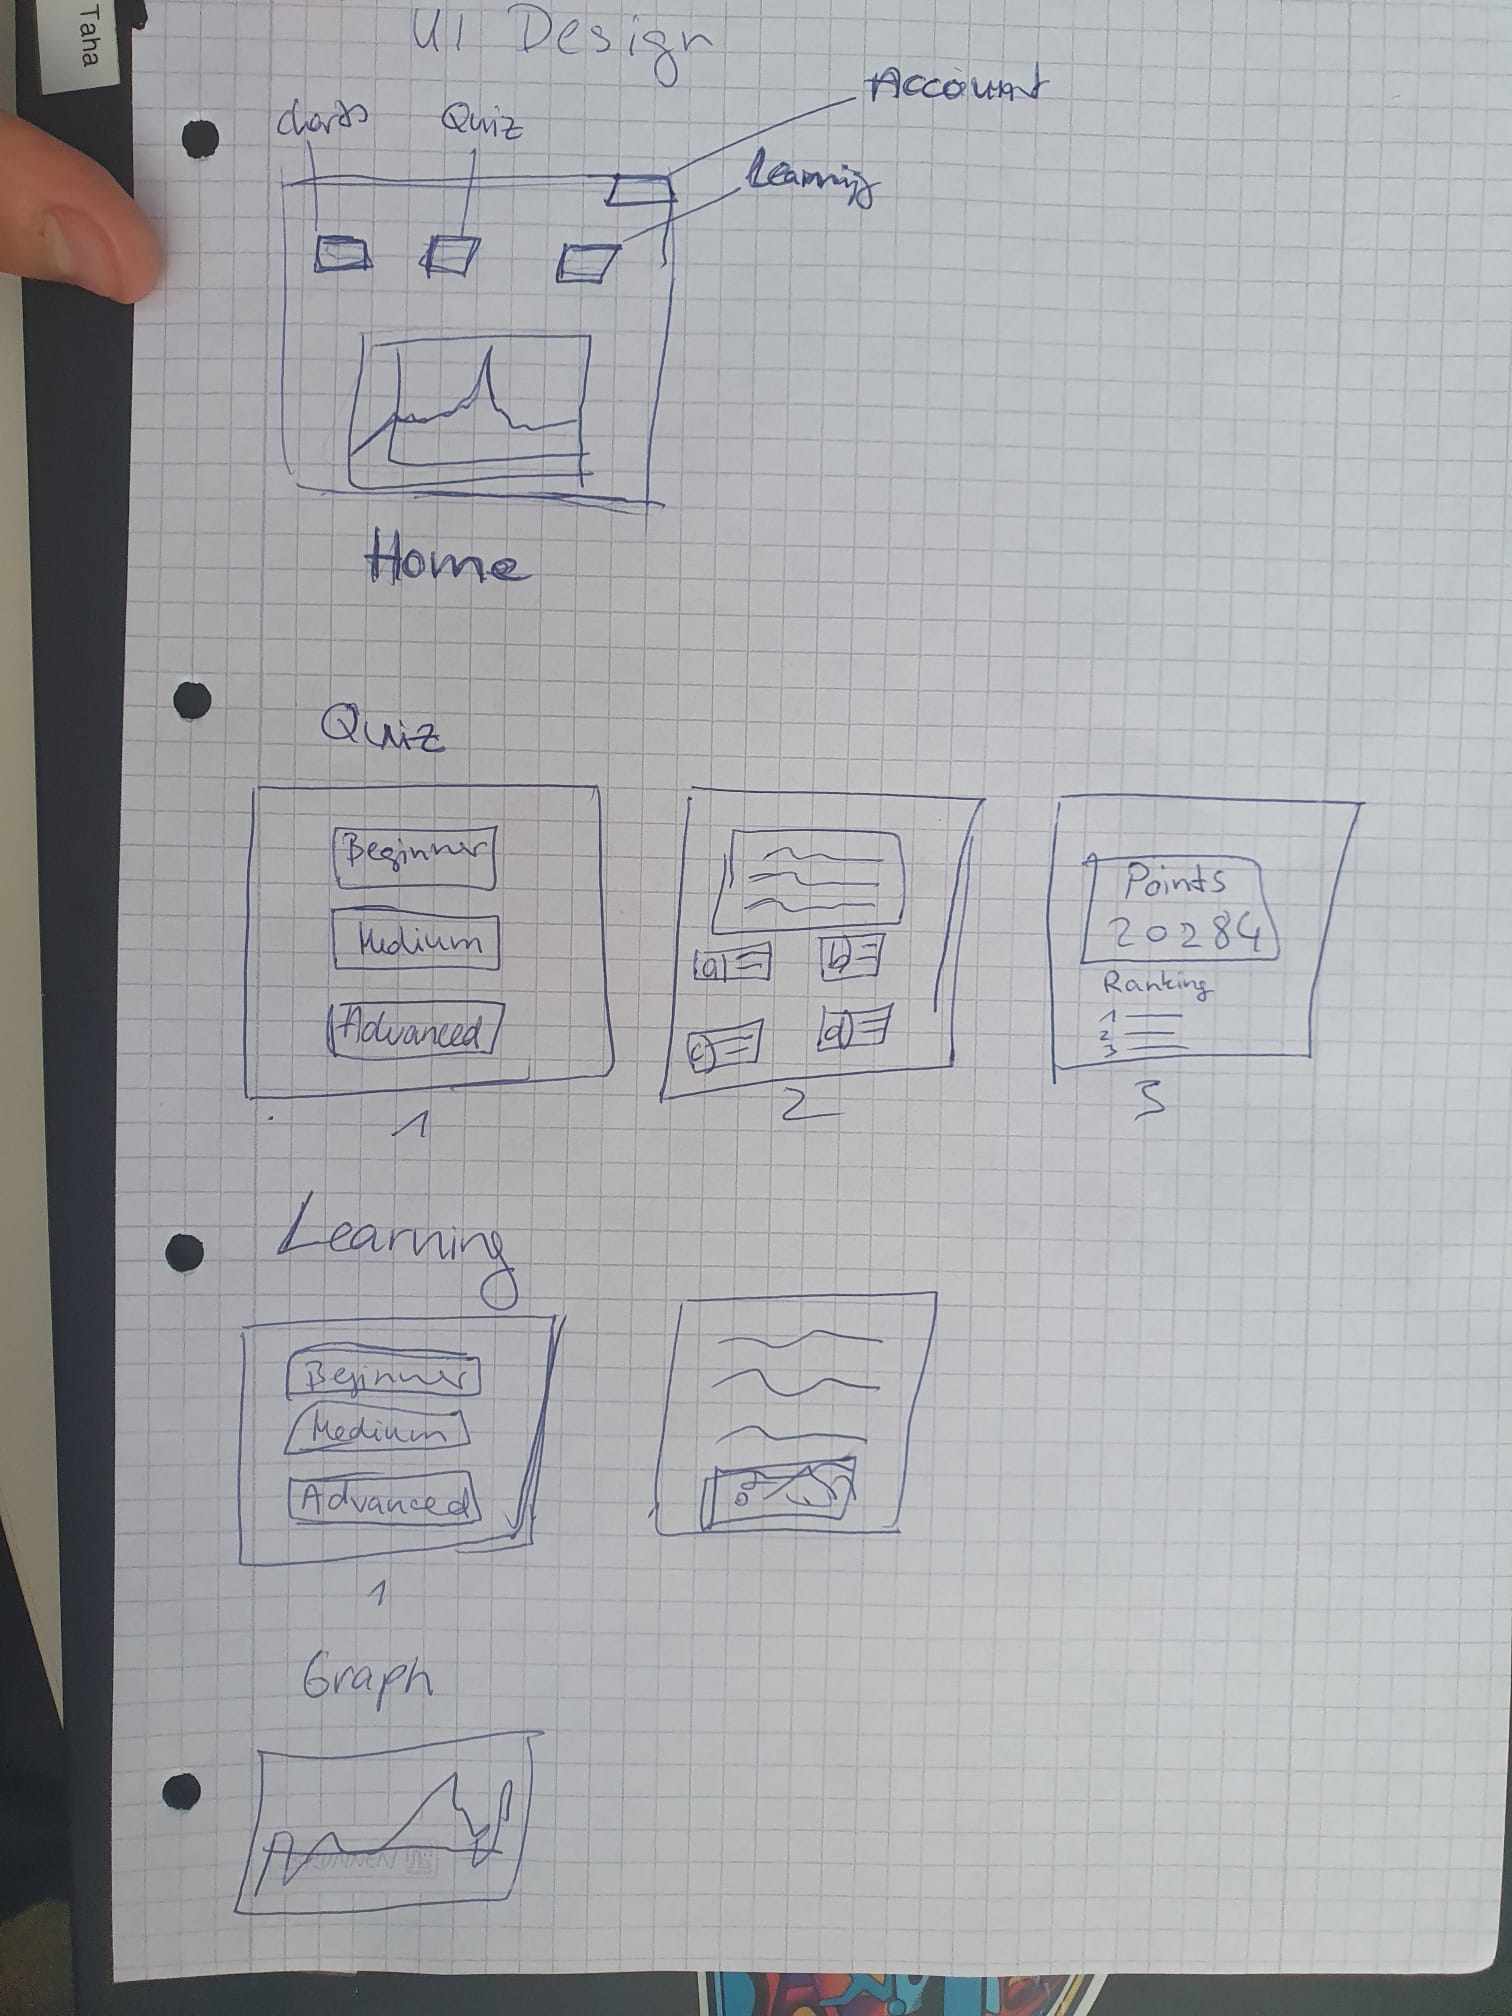 Taha
UI Design
Account
charts
Quiz
Learning
Home
Quiz
Beginner
Medium
Advanced
1
a)
b)
c)
d)
2
Points
20284
Ranking
1
2
3
3
Learning
Beginner
Medium
Advanced
1
Graph